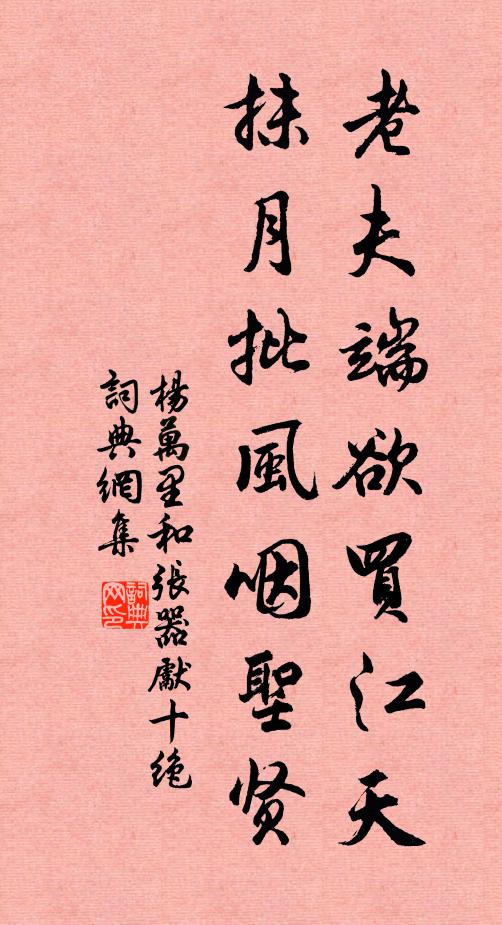 老夫端欲買江天
抹月批風咽聖贤
楊萬里和張器獻十绝
詞典網集
詞典網印